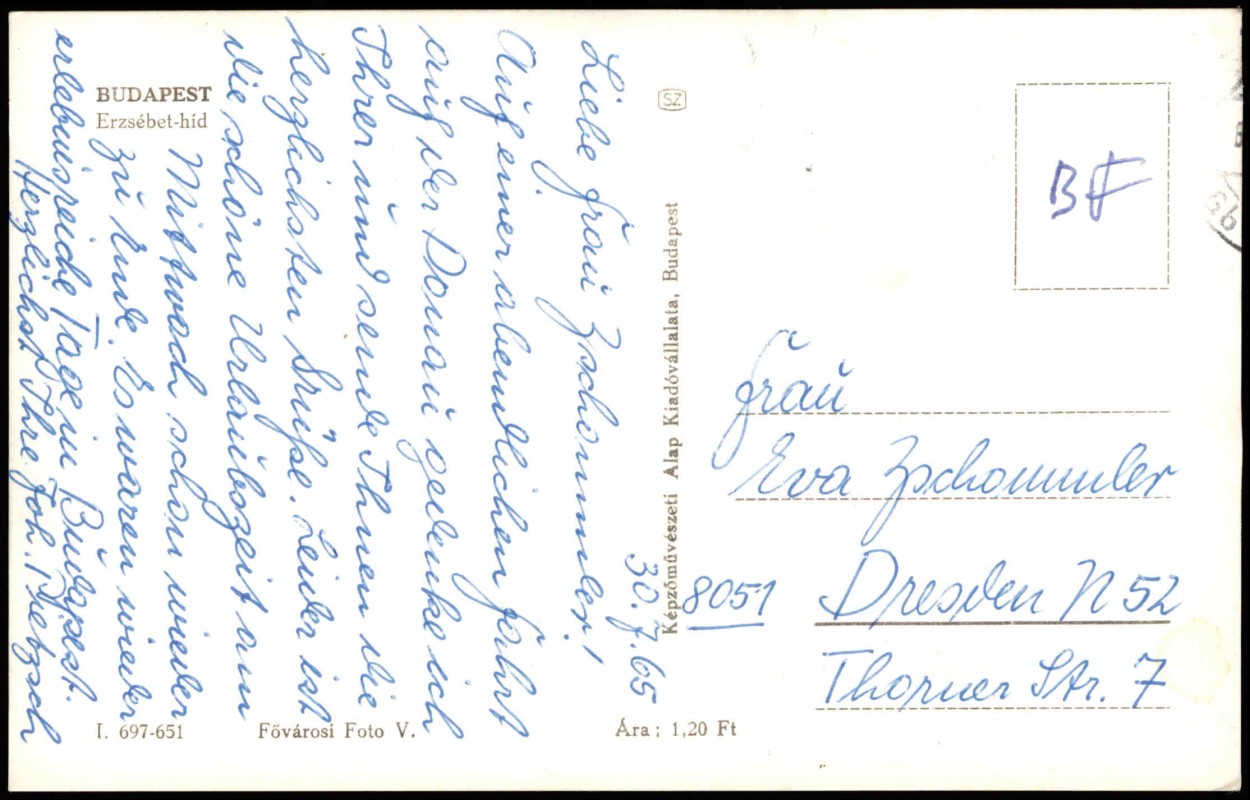 BUDAPEST
Erzsébet-híd
30.7.65
Liebe Frau Zschommler!
Auf einer abendlichen Fahrt
auf der Donau gedenke ich
Ihrer und sende Ihnen die
herzlichsten Grüße. Leider ist
die schöne Urlaubszeit am
Mittwoch schon wieder
zu Ende. Es waren wieder
erlebnisreiche Tage in Budapest.
Herzlichst Ihre Joh.
SZ
Képzőművészeti Alap Kiadóvállalata, Budapest
BF
Frau
Eva Zschommler
8051 Dresden N 52
Thorner Str. 7
I. 697-651
Fővárosi Foto V.
Ára: 1,20 Ft